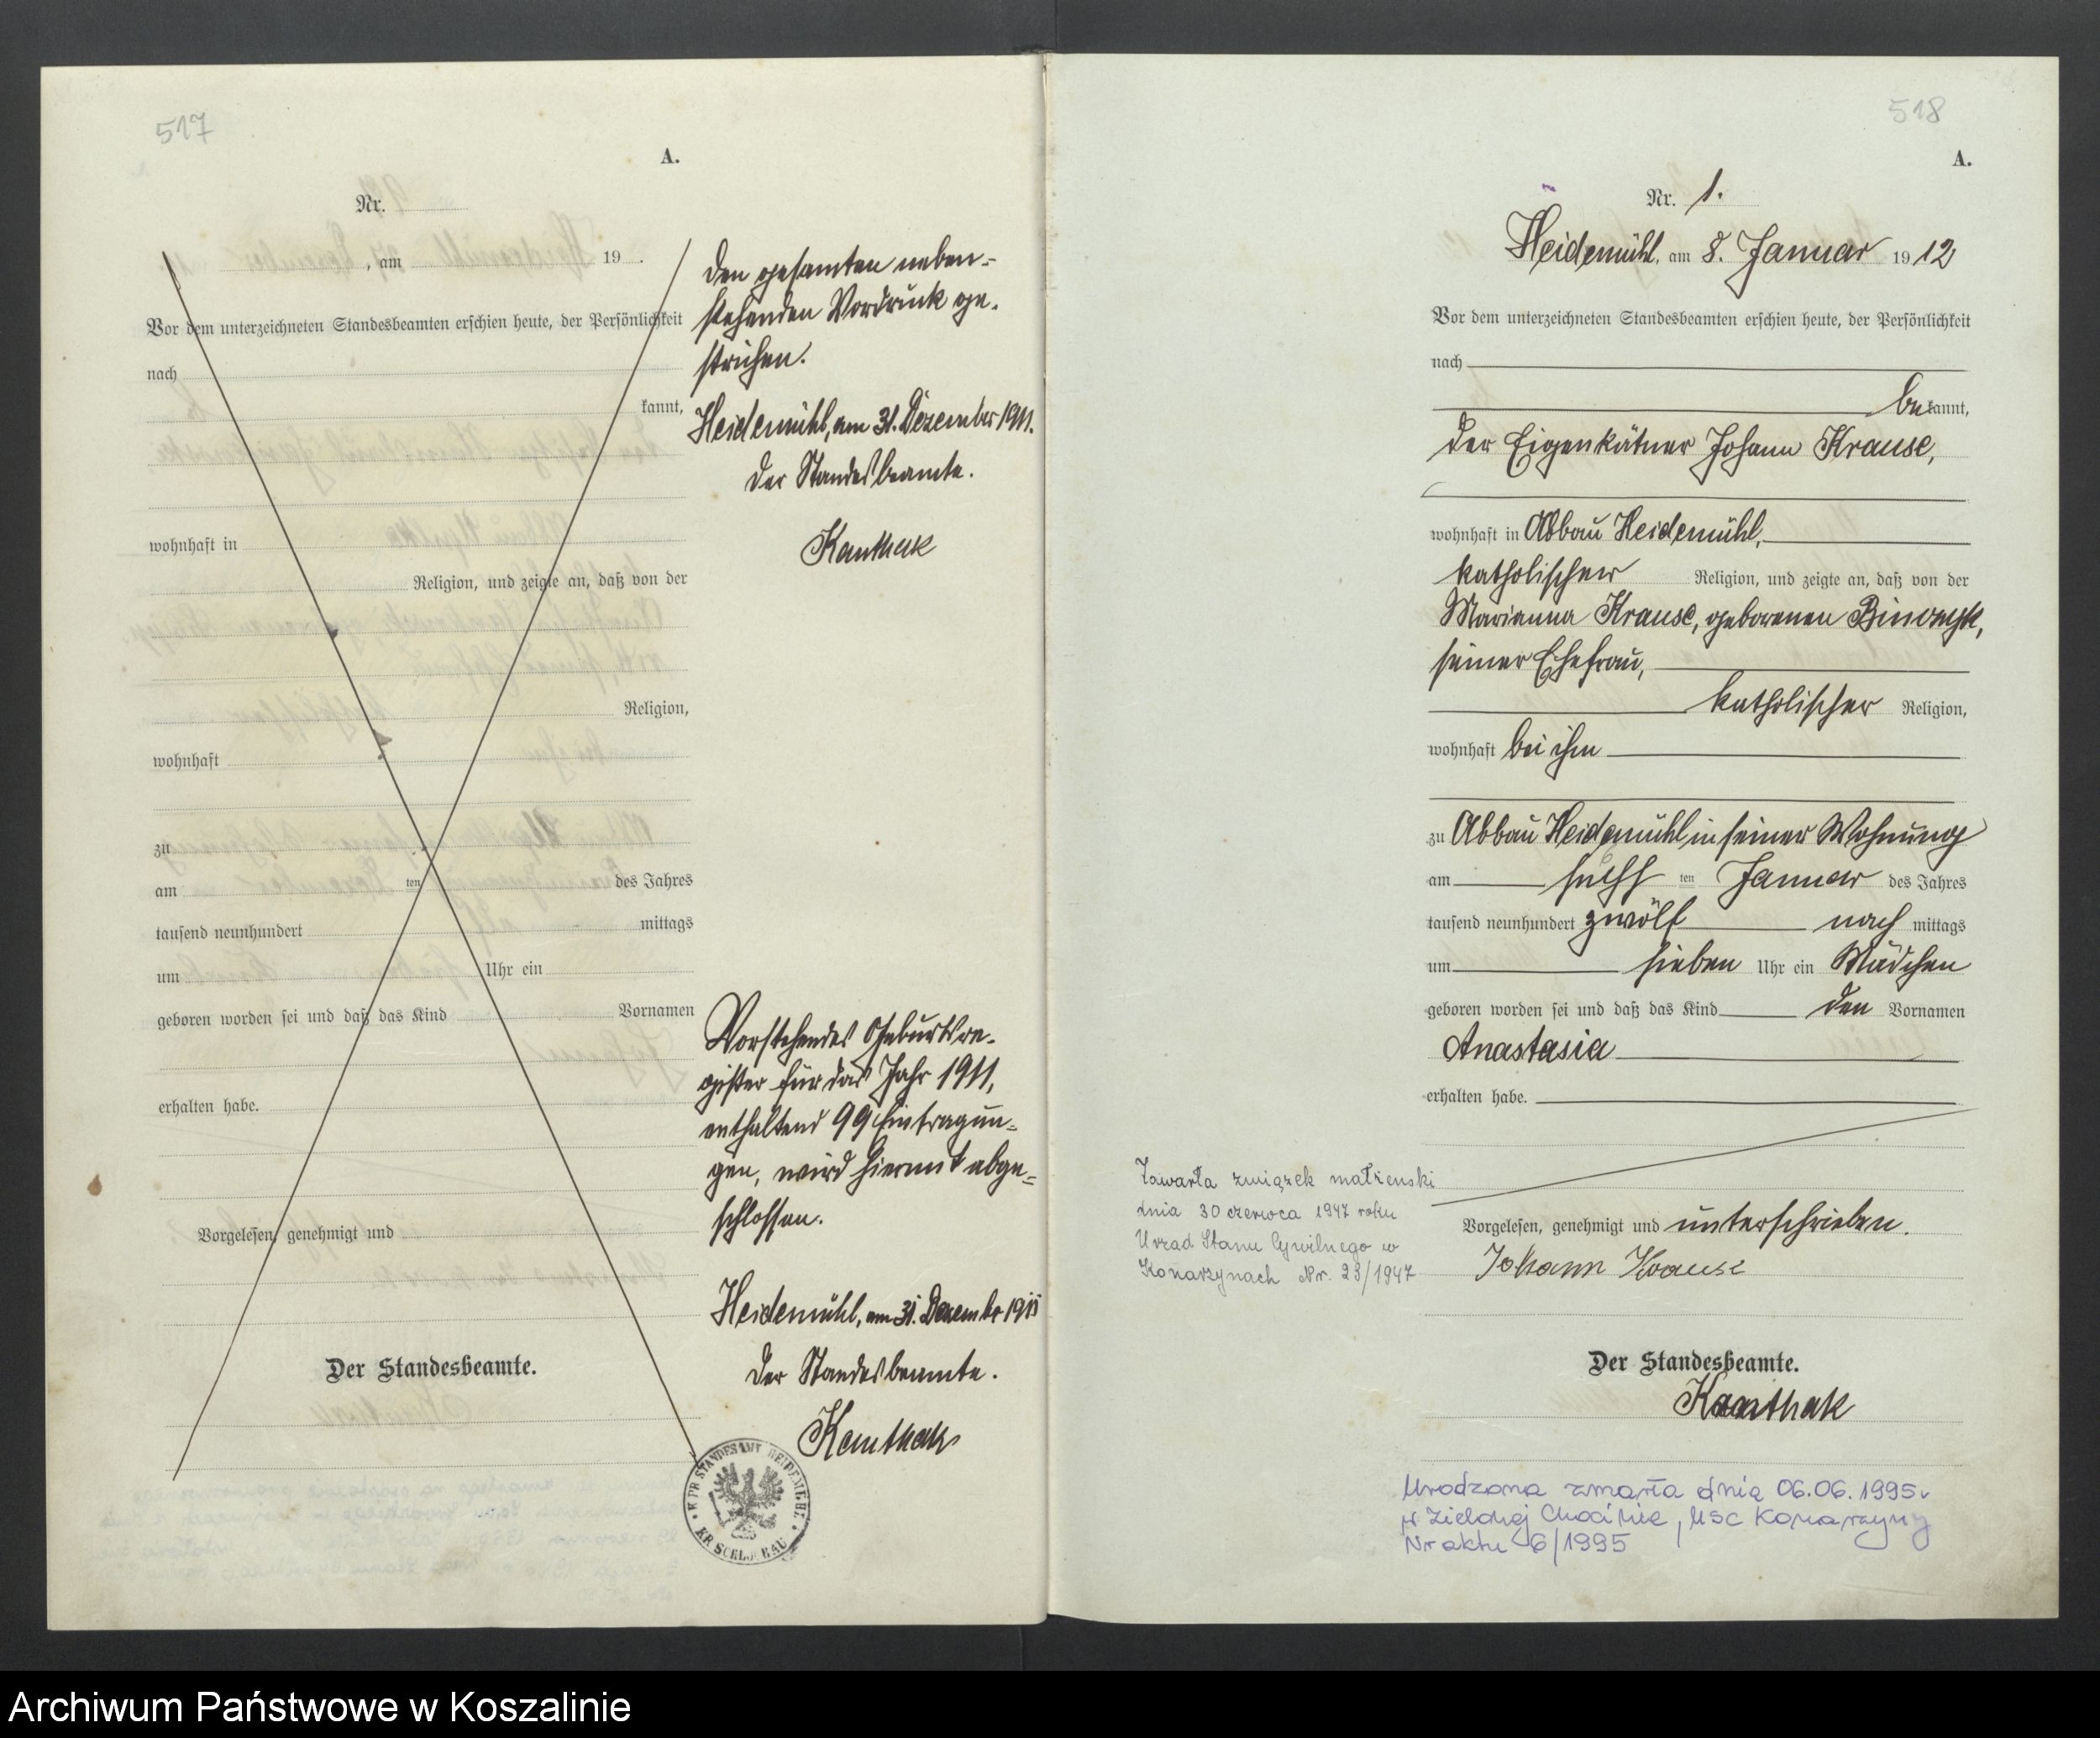 517
A.
Nr.
, am 19 .
Vor dem unterzeichneten Standesbeamten erschien heute, der Persönlichkeit
nach
kannt,
wohnhaft in
Religion, und zeigte an, daß von der
Religion,
wohnhaft
zu
am ten des Jahres
tausend neunhundert mittags
um Uhr ein
geboren worden sei und daß das Kind Vornamen
erhalten habe.
Vorgelesen, genehmigt und
Der Standesbeamte.
Den gesamten neben-
stehenden Vordruck ge-
strichen.
Heidemühl, am 31. Dezember 1911.
Der Standesbeamte.
Kanthak
Vorstehendes Geburtsre-
gister für das Jahr 1911,
enthaltend 99 Eintragun-
gen, wird hiermit abge-
schlossen.
Heidemühl, am 31. Dezember 1911
Der Standesbeamte.
Kanthak
K. PR. STANDESAMT HEIDEMÜHL
KR. SCHLOCHAU
518
A.
Nr. 1.
Heidemühl, am 8. Januar 1912
Vor dem unterzeichneten Standesbeamten erschien heute, der Persönlichkeit
nach
bekannt,
der Eigenkätner Johann Krause,
wohnhaft in Abbau Heidemühl,
katholischer Religion, und zeigte an, daß von der
Marianna Krause, geborenen Binczyk,
seiner Ehefrau,
katholischer Religion,
wohnhaft bei ihm
zu Abbau Heidemühl in seiner Wohnung
am sechs ten Januar des Jahres
tausend neunhundert zwölf nach mittags
um sieben Uhr ein Mädchen
geboren worden sei und daß das Kind den Vornamen
Anastasia
erhalten habe.
Vorgelesen, genehmigt und unterschrieben.
Johann Krause
Der Standesbeamte.
Kanthak
Zawarła związek małżenski
dnia 30 czerwca 1947 roku
Urzad Stanu Cywilnego w
Konarzynach Nr. 23/1947
Urodzona zmarła dnia 06.06.1995r
w Zielonej Chocinie, USC Konarzyny
Nr aktu 6/1995
Archiwum Państwowe w Koszalinie